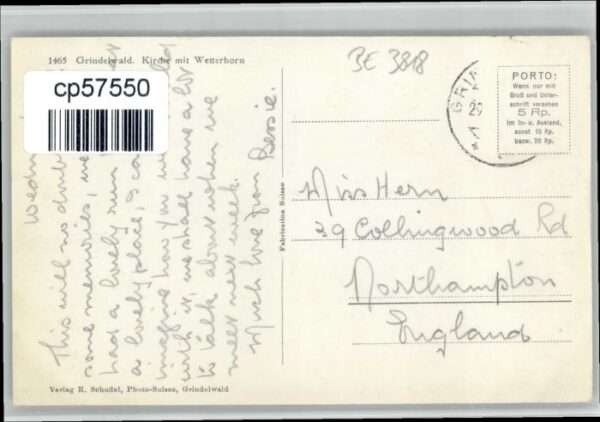 1465 Grindelwald. Kirche mit Wetterhorn
cp57550
BE 3818
GRIN
29
PORTO:
Wenn nur mit
Gruß und Unter-
schrift versehen
5 Rp.
im In- u. Ausland,
sonst 10 Rp.
bezw. 20 Rp.
Wedn
This will no doubt
some memories, we
had a lovely run
a lovely place, I can
imagine how you
with it, we shall have a lot
to talk about when we
meet next week.
Much love from Bessie.
Fabrication Suisse
Miss Hern
39 Collingwood Rd
Northampton
England
Verlag R. Schudel, Photo-Suisse, Grindelwald